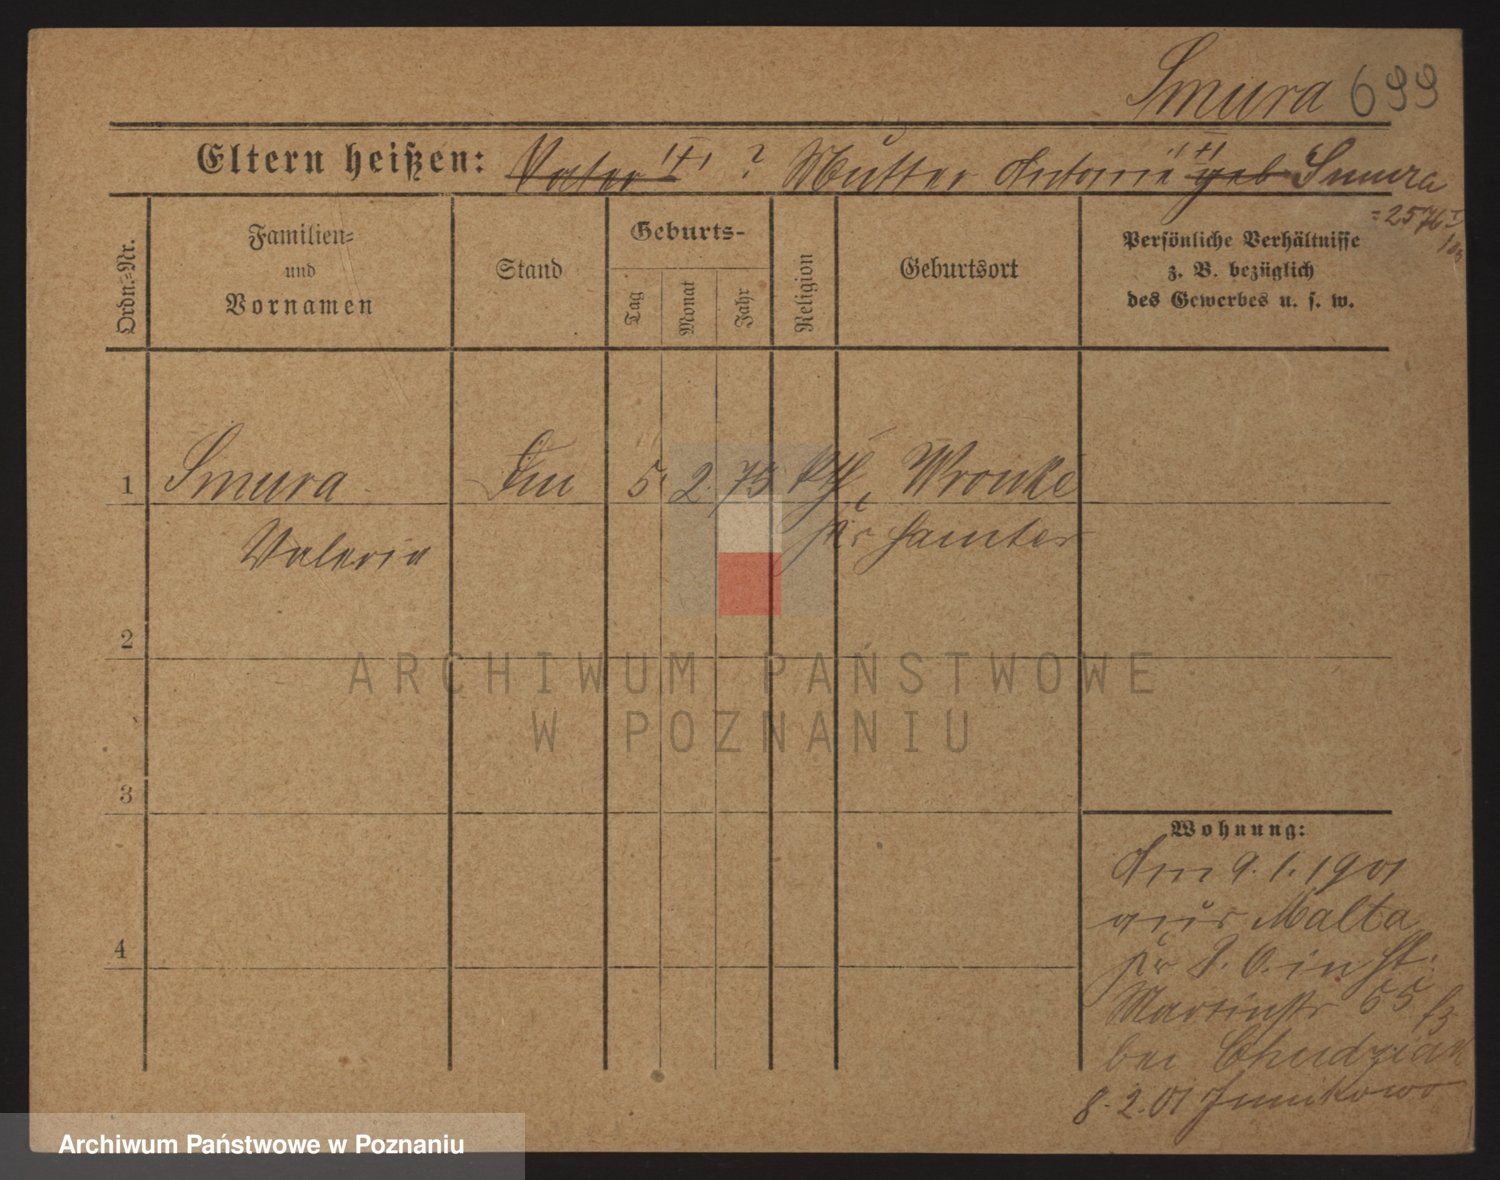 Smura 699
Eltern heißen: Vater ? Mutter Antonie geb Smura
=2576
Ordn.-Nr.
Familien-
und
Vornamen
Stand
Geburts-
Tag
Monat
Jahr
Religion
Geburtsort
Persönliche Verhältnisse
z. B. bezüglich
des Gewerbes u. s. w.
1 Smura 5. 2. 75 kth, Wronke
Valeria Kr Samter
2
3
4
Wohnung:
Am 9.1.1901
aus Malta
in St.
Martinstr 55
bei Chudziak
8.2.01 Junikowo
ARCHIWUM PAŃSTWOWE
W POZNANIU
Archiwum Państwowe w Poznaniu